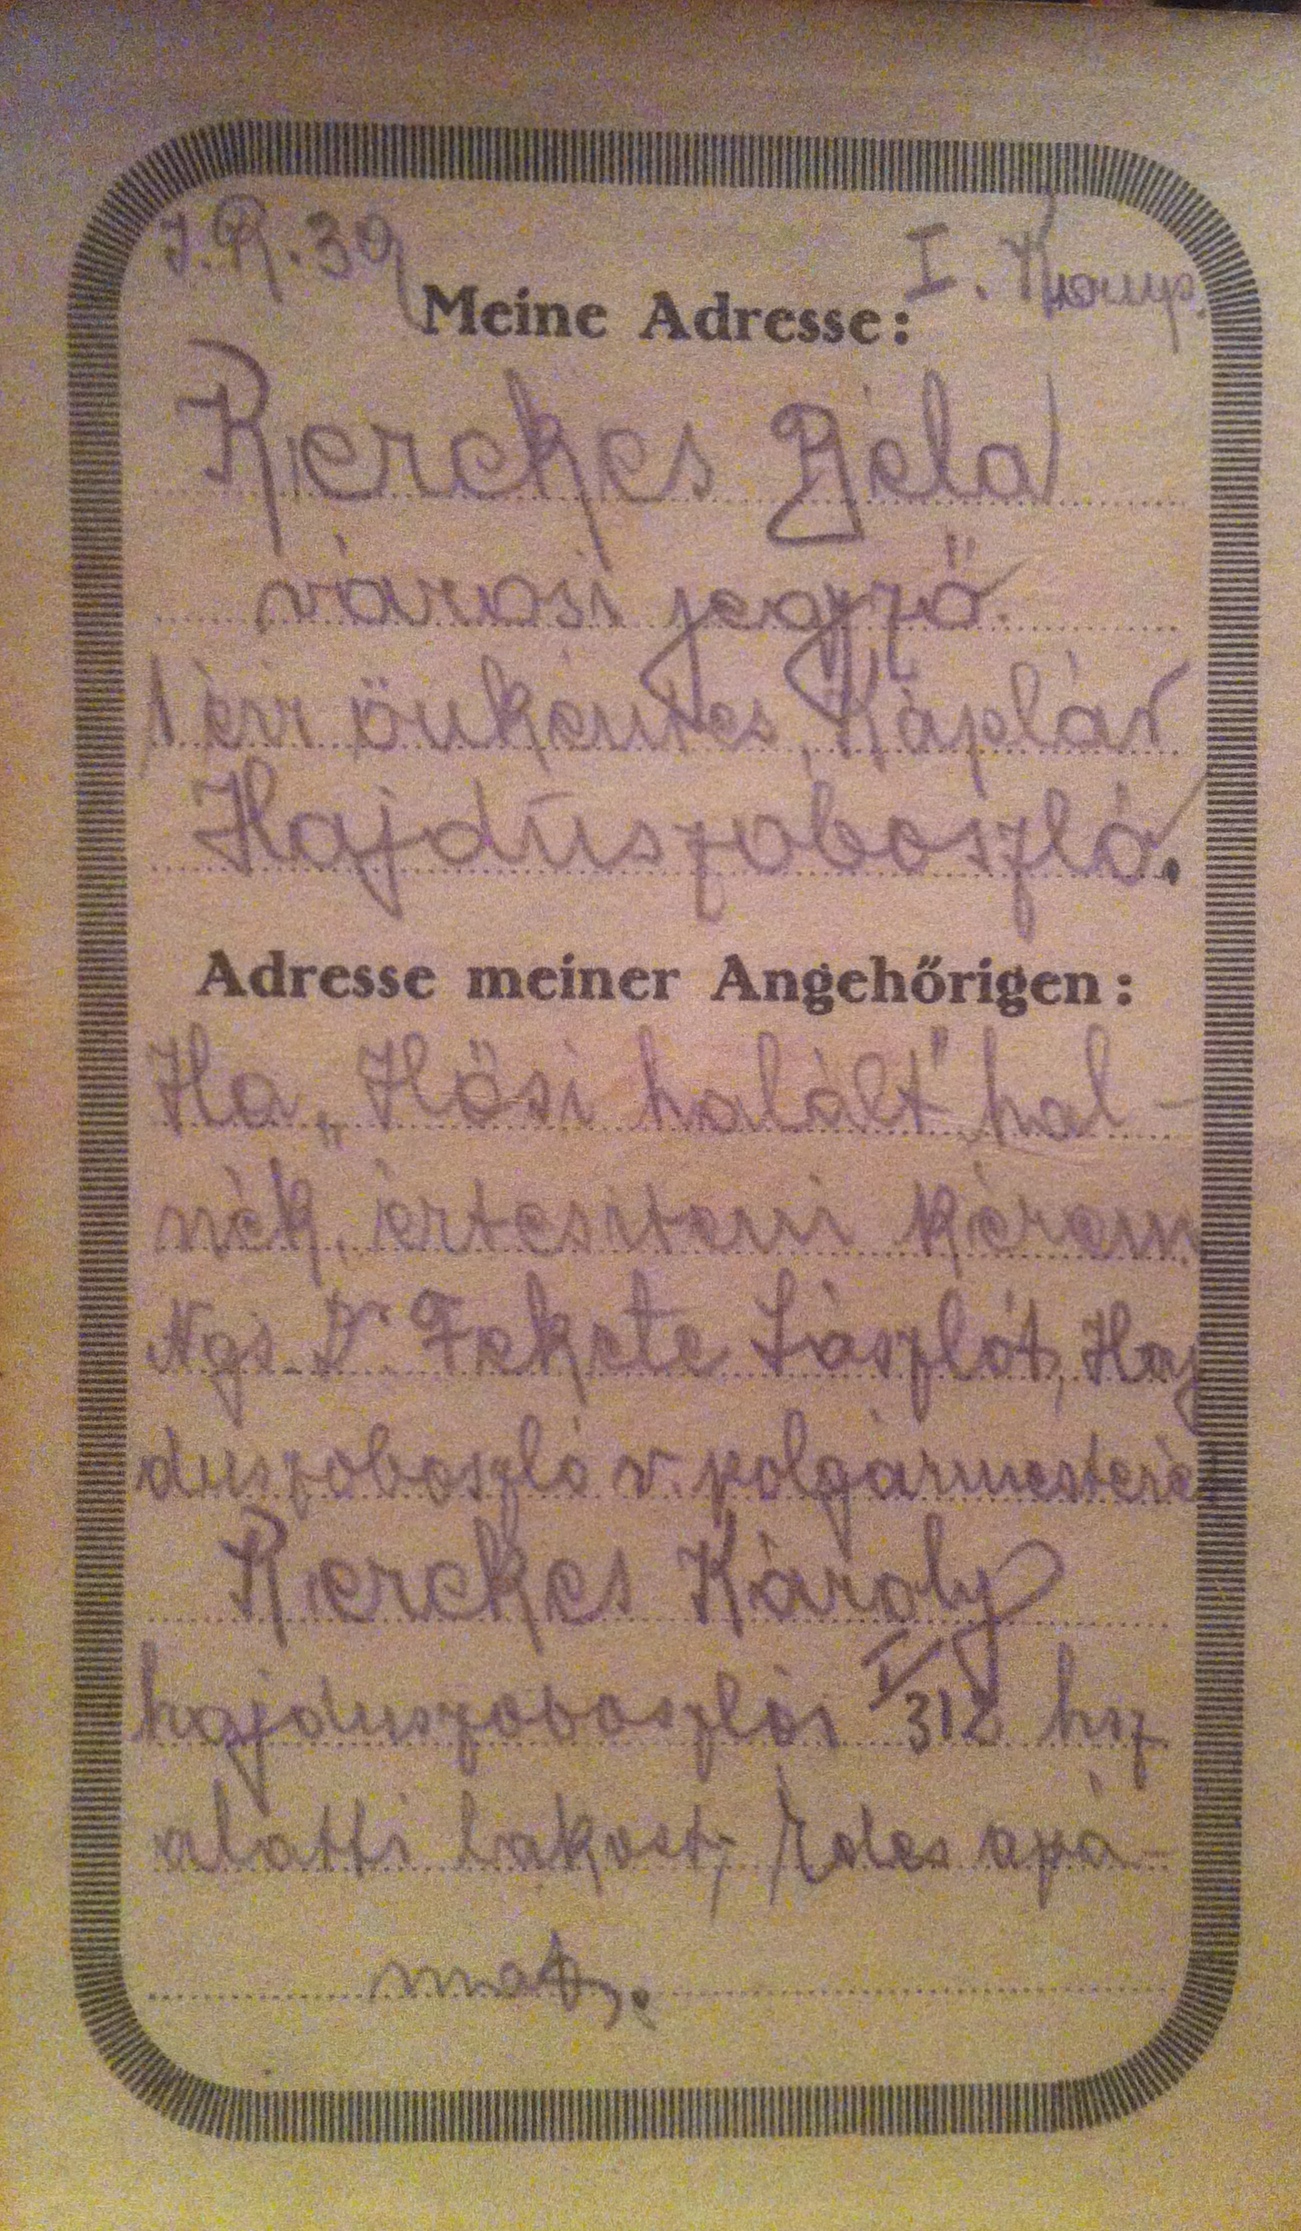 J.R. 39 I. Komp.
Meine Adresse:
Kerekes Béla
városi jegyző.
1 évi önkéntes, Káplár
Hajdúszoboszló.
Adresse meiner Angehőrigen:
Ha „Hősi halált" hal-
nék, értesíteni kérem
Ngs. Dr. Fekete Lászlót, Haj
duszoboszló v. polgármesterét
Kerekes Károly
hajduszoboszlói I/312 hsz
alatti lakost, Édes apá-
mat.